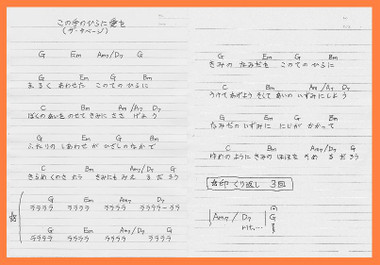 この手のひらに愛を
(ザ・サベージ)
G Em Am7/D7 G
G Em G Bm
まるく あわせた このてのひらに
C Bm Am/A7 D7
ぼくのあいをのせて きみに ささげよう
G Em G Bm
ふたりのしあわせが かざしのなかで
C Bm Am7/D7 G
きらめくのさ きみにも みえるだろう
G Em Am7 D7
ララララ ララララ ララララ ララララーララ
G Em Am7/D7 G
ララララ ララララ ララララ ララララ
G Em G Bm
きみの なみだを このてのひらに
C Bm Am/A7 D7
うけて そして あいの いずみにしよう
G Em G Bm
なみだのいずみに にじが かかって
C Bm Am7/D7 G
ゆめのように きみの ほほを そめるだろう
☆印くり返し 3回
Am7/D7 G
rit....